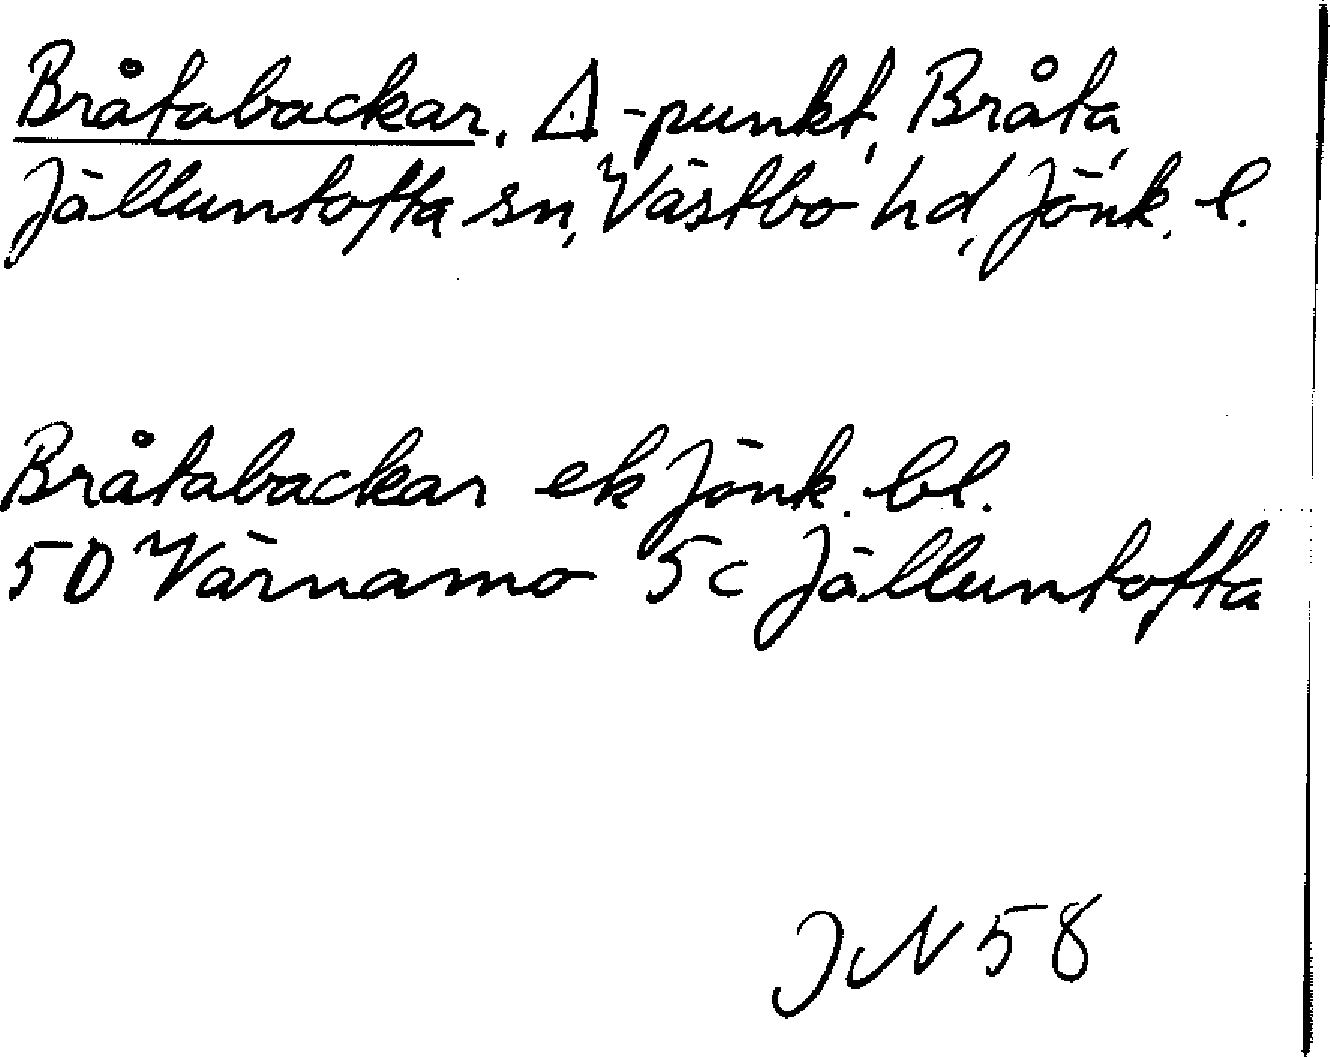 Bråtabackar, △-punkt, Bråta,
Jälluntofta sn, Västbo hd, Jönk. l.
Bråtabackar ek Jönk. bl.
5D Värnamo 5c Jälluntofta
JN 58